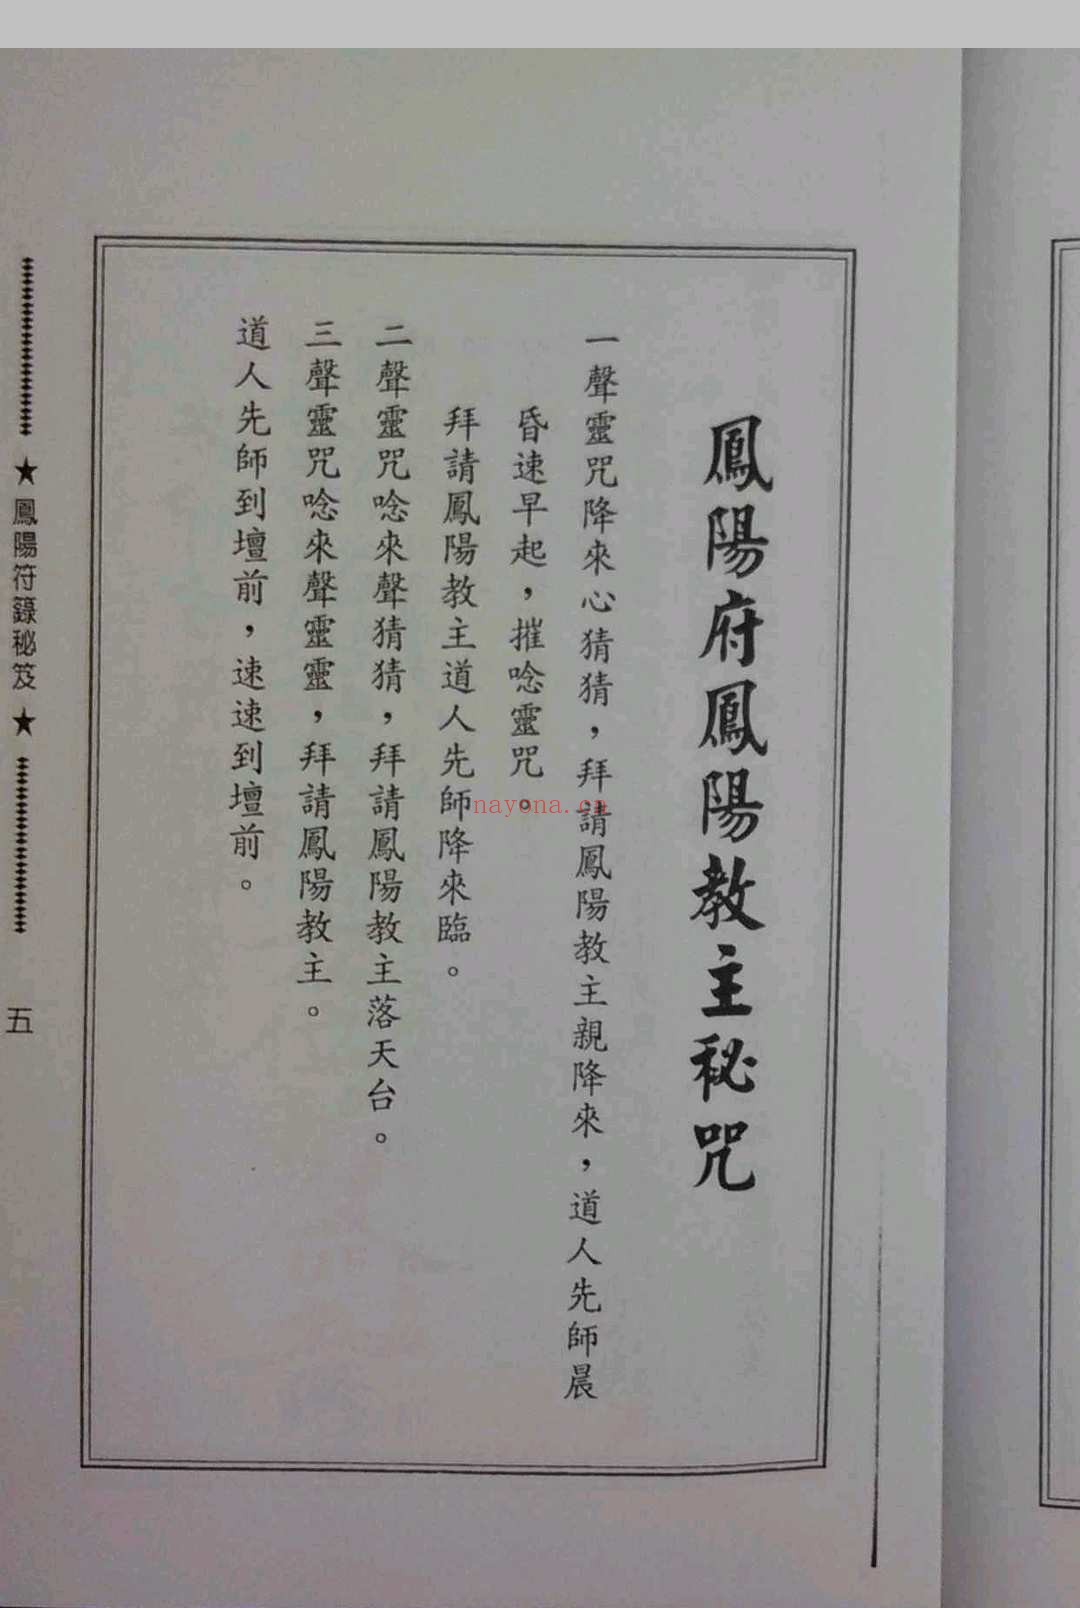 鳳陽府鳳陽教主秘咒
一聲靈咒降來心猜猜，拜請鳳陽教主親降來，道人先師晨
昏速早起，摧唸靈咒。
拜請鳳陽教主道人先師降來臨。
二聲靈咒唸來聲猜猜，拜請鳳陽教主落天台。
三聲靈咒唸來聲靈靈，拜請鳳陽教主。
道人先師到壇前，速速到壇前。
★鳳陽符籙秘笈★
五
nayona.cn